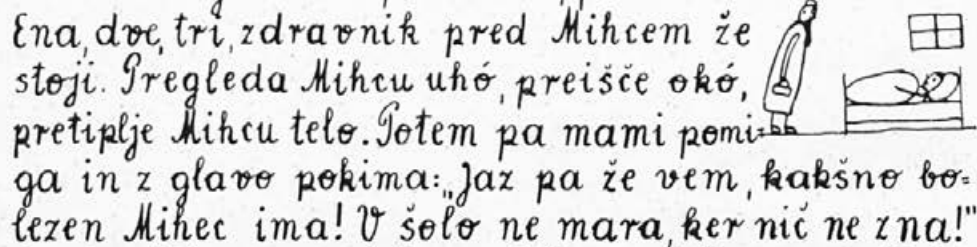 Ena, dve, tri, zdravnik pred Mihcem že
stoji. Pregleda Mihcu uhó, preišče okó,
pretiplje Mihcu telo. Potem pa mami pomi=
ga in z glavo pokima: „Jaz pa že vem, kakšno bo=
lezen Mihec ima! V šolo ne mara, ker nič ne zna!"